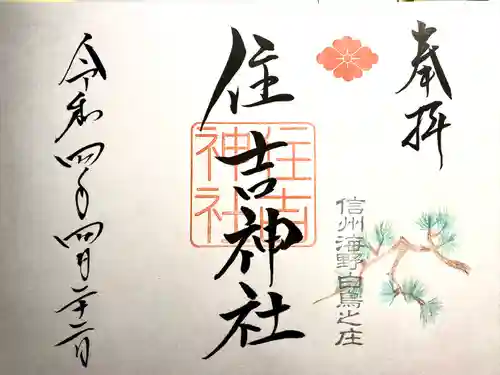 奉拝
信州海野白鳥之庄
住吉神社
住吉神社
令和四年四月二十二日